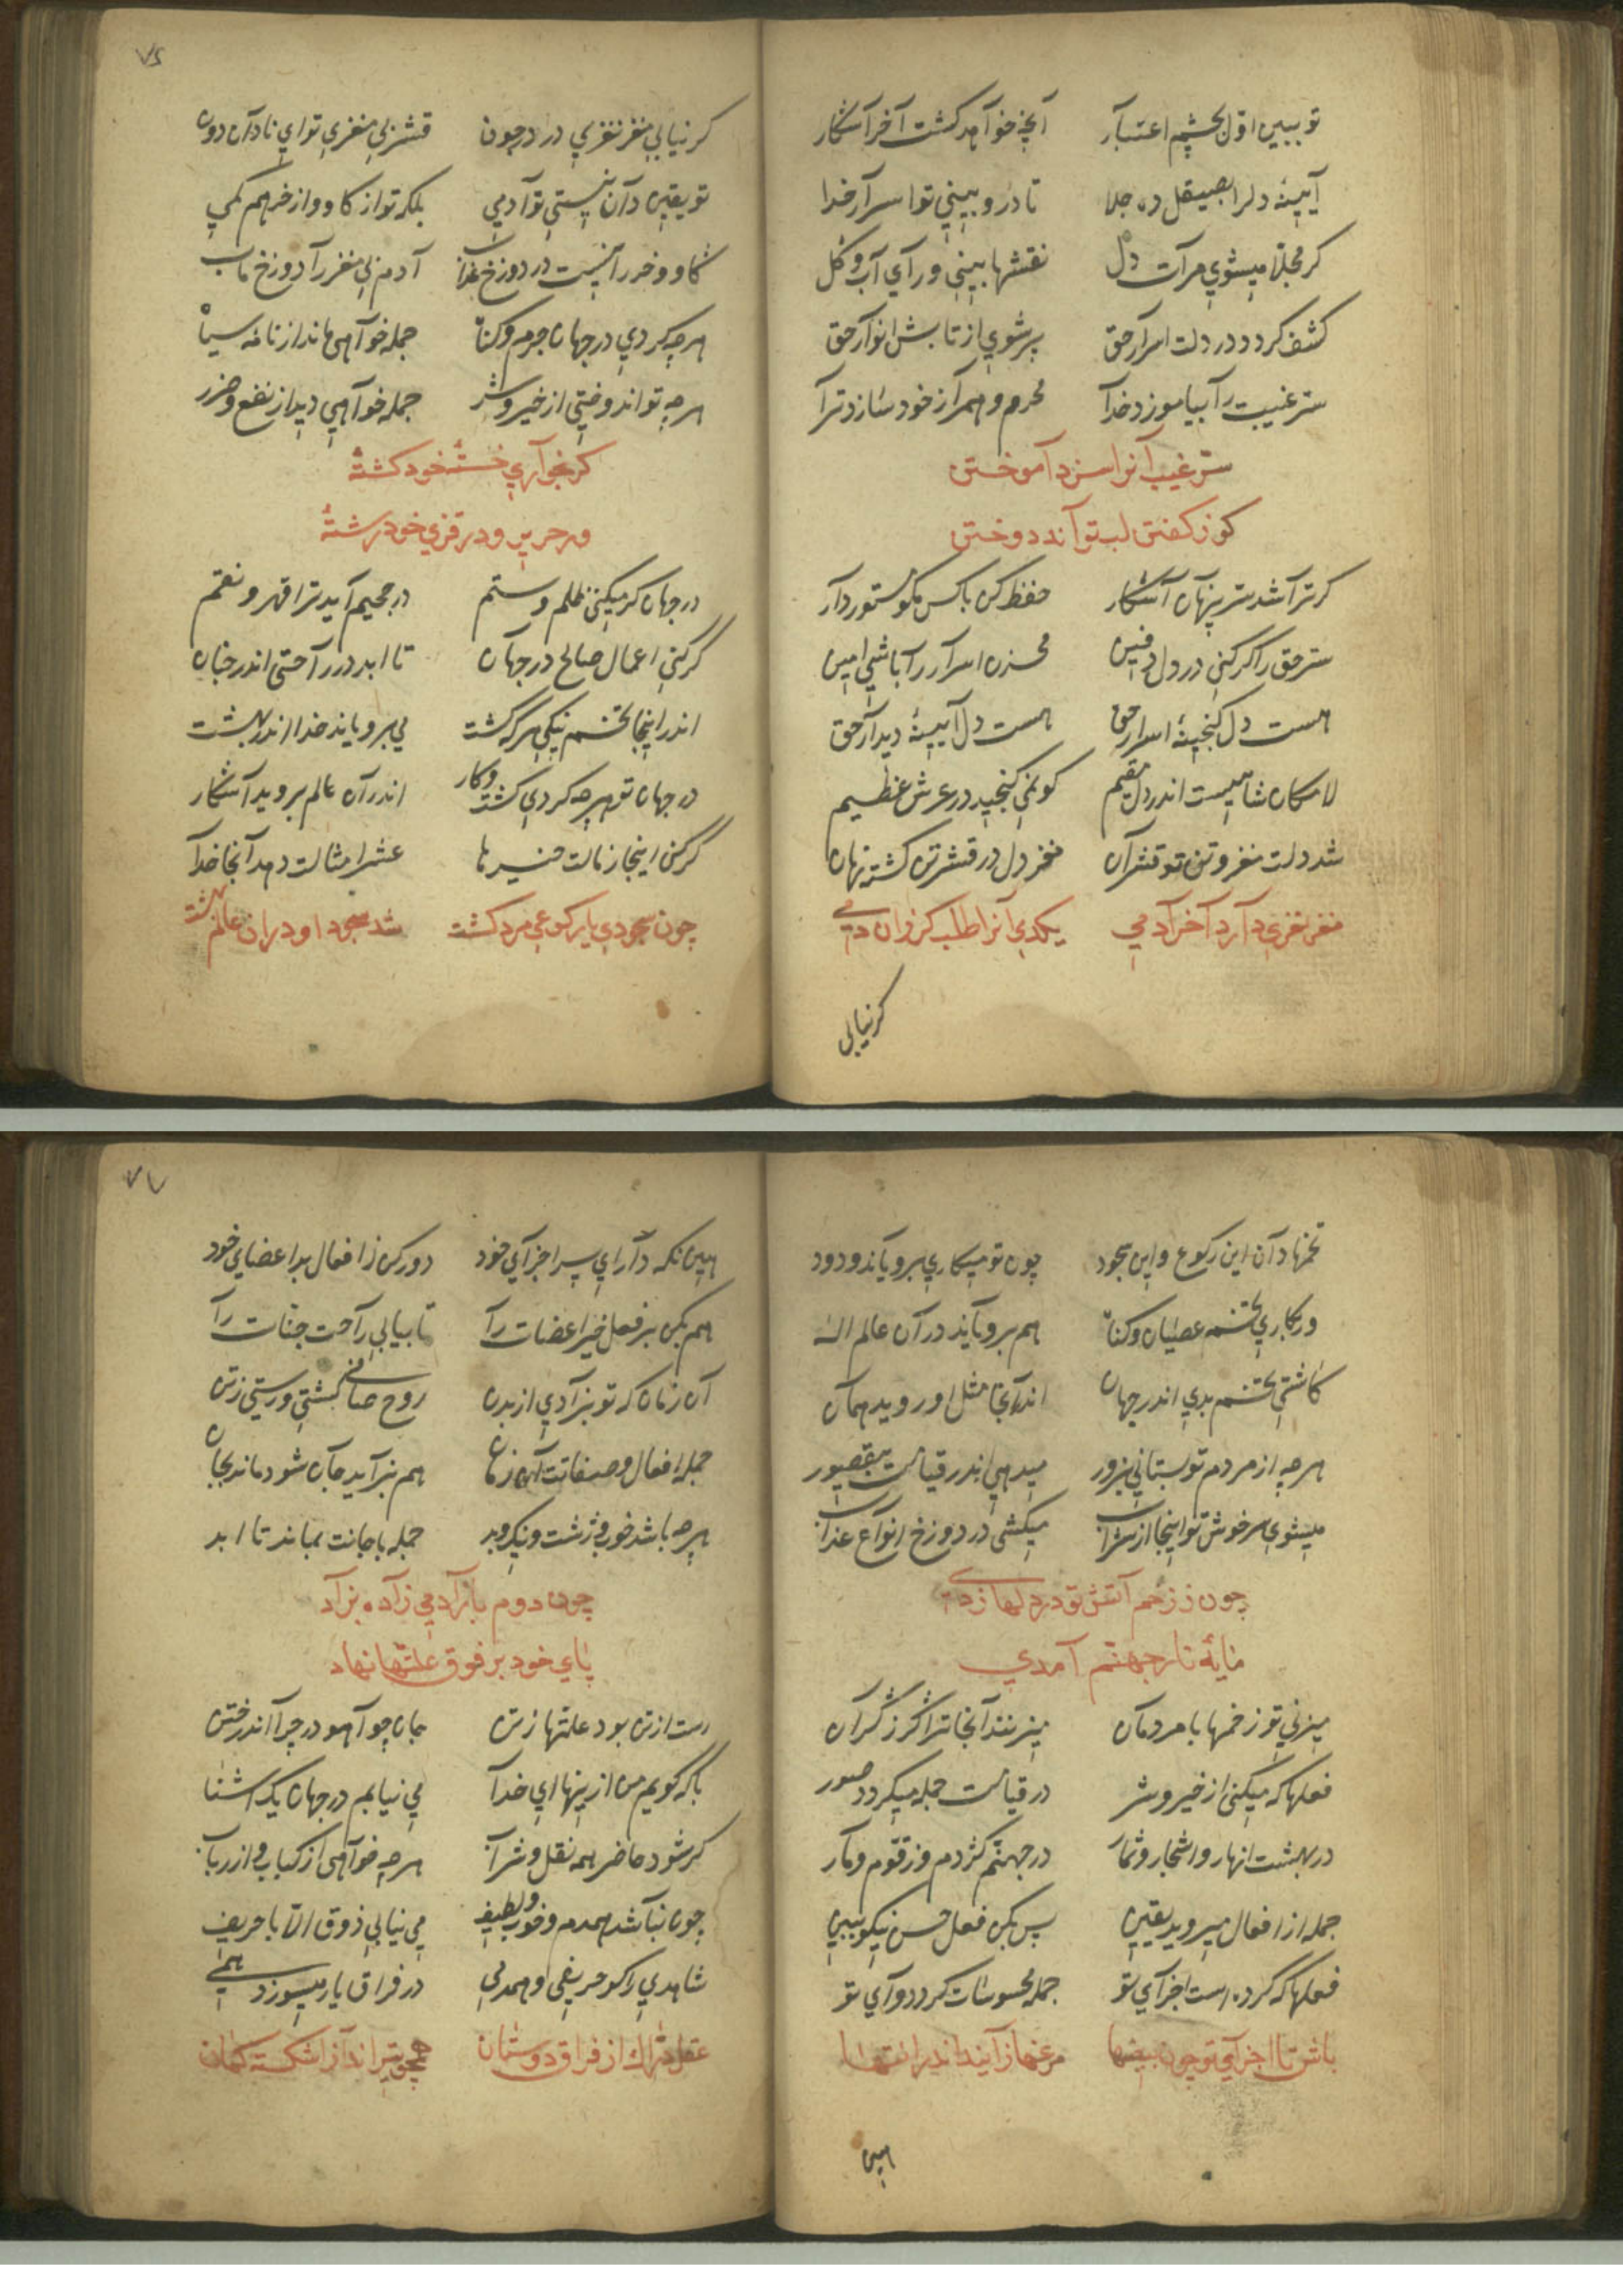 تو ببین اول بچشم اعتبار آنچه خواهد گشت آخر آشکار
آیینهٔ دلرا بصیقل ده جلا تا درو بینی تو اسرار خدا
کر مجلا میشوی مرآت دل نقشها بینی ورای آب و گل
کشف کردد در دلت اسرار حق پر شوی از تابش انوار حق
سر غیبت را بیاموزد خدا محرم و همراز خود سازد ترا
سر غیب آنرا سزد آموختن
کوز کفتن لب تواند دوختن
کر ترا شد سر پنهان آشکار حفظ کن با کس مکو مستور دار
سر حق را کر کنی در دل دفین مخزن اسرار را باشی امین
هست دل کنجینهٔ اسرار حق هست دل آیینهٔ دیدار حق
لامکان شاهیست اندر دل مقیم کو نمی کنجید در عرش عظیم
شد دلت مغز و تن تو قشر آن مغز دل در قشر تن کشته نهان
مغز نغزی دارد آخر آدمی یکدمی آنرا طلب کر زان دمی
کر نیابی
۷۶
کر نیابی مغز نغزی در درون قشر بی مغزی تو ای نادان دون
تو یقین دان نیستی تو آدمی بلکه تو از کاو و از خر هم کمی
کاو و خر را نیست در دوزخ عذاب آدم بی مغز را دوزخ مآب
هرچه کردی در جهان جرم و کناه جمله خواهی ماند از نامه سیاه
هرچه تو اندوختی از خیر و شر جمله خواهی دید از نفع و ضرر
کر بخواری خستهٔ خود کشتهٔ
ور حریر و در قزی خود رشتهٔ
در جهان کر میکنی ظلم و ستم در جحیم آید ترا قهر و نقم
گر کنی اعمال صالح در جهان تا ابد در راحتی اندر جنان
اندر اینجا تخم نیکی هر که کشت می برویاند خدا اندر بهشت
در جهان تو هرچه کردی کشت و کار اندر آن عالم بروید آشکار
گر کنی اینجا زمالت خیرها عشر امثالت دهد آنجا خدا
چون سجودی یا رکوعی مرد کشت شد سجود او در آن عالم بهشت
تخمها دان این رکوع و این سجود چون تو میکاری برویاند ودود
ور بکاری تخم عصیان و کناه هم برویاند در آن عالم اله
کاشتی تخم بدی اندر جهان اندر آنجا مثل او روید همان
هرچه از مردم تو بستانی بزور میدهی اندر قیامت بیقصور
میشوی سرخوش تو اینجا از شراب میکشی در دوزخ انواع عذاب
چون ز زخم آتش تو در دلها زدی
مایهٔ نار جهنم آمدی
میزنی تو زخمها با مردمان میزنند آنجا ترا گرز گران
فعلها که میکنی از خیر و شر در قیامت جمله میکردد صور
در بهشت انهار و اشجار و ثمار در جهنم کژدم و زقوم و مار
جمله از افعال میروید یقین پس بکن فعل حسن نیکو ببین
فعلها که کرده است اجزای تو جمله محسوسات کردد وای تو
باش تا اجزای تو چون بیضها مرغها زایند اندر انتها
هین
۷۷
هین نکه دار ای پسر اجزای خود دور کن ز افعال بد اعضای خود
هم بکن بر فعل خیر اعضات را تا بیابی راحت جنات را
آن زمان که تو بزادی از بدن روح صافی کشتی و رستی زتن
جمله افعال و صفاتت آن زمان هم بزاید جان شود ماند بجان
هرچه باشد خوب و زشت و نیک و بد جمله با جانت بماند تا ابد
چون دوم بار آدمی زاده بزاد
پای خود بر فرق علتها نهاد
رست از تن بود علتها زتن جان چو آهو در چرا اندر ختن
با که کویم من از ینها ای خدا می نیابم در جهان یک آشنا
کر شود حاضر همه نقل و شراب هرچه خواهی از کباب و از رباب
چون نباشد همدم و خوب و لطیف می نیابی ذوق الا با حریف
شاهدی را کو حریفی و همدمی در فراق یار میسوزد همی
عقل دراک از فراق دوستان همچو تیرانداز اشکسته کمان